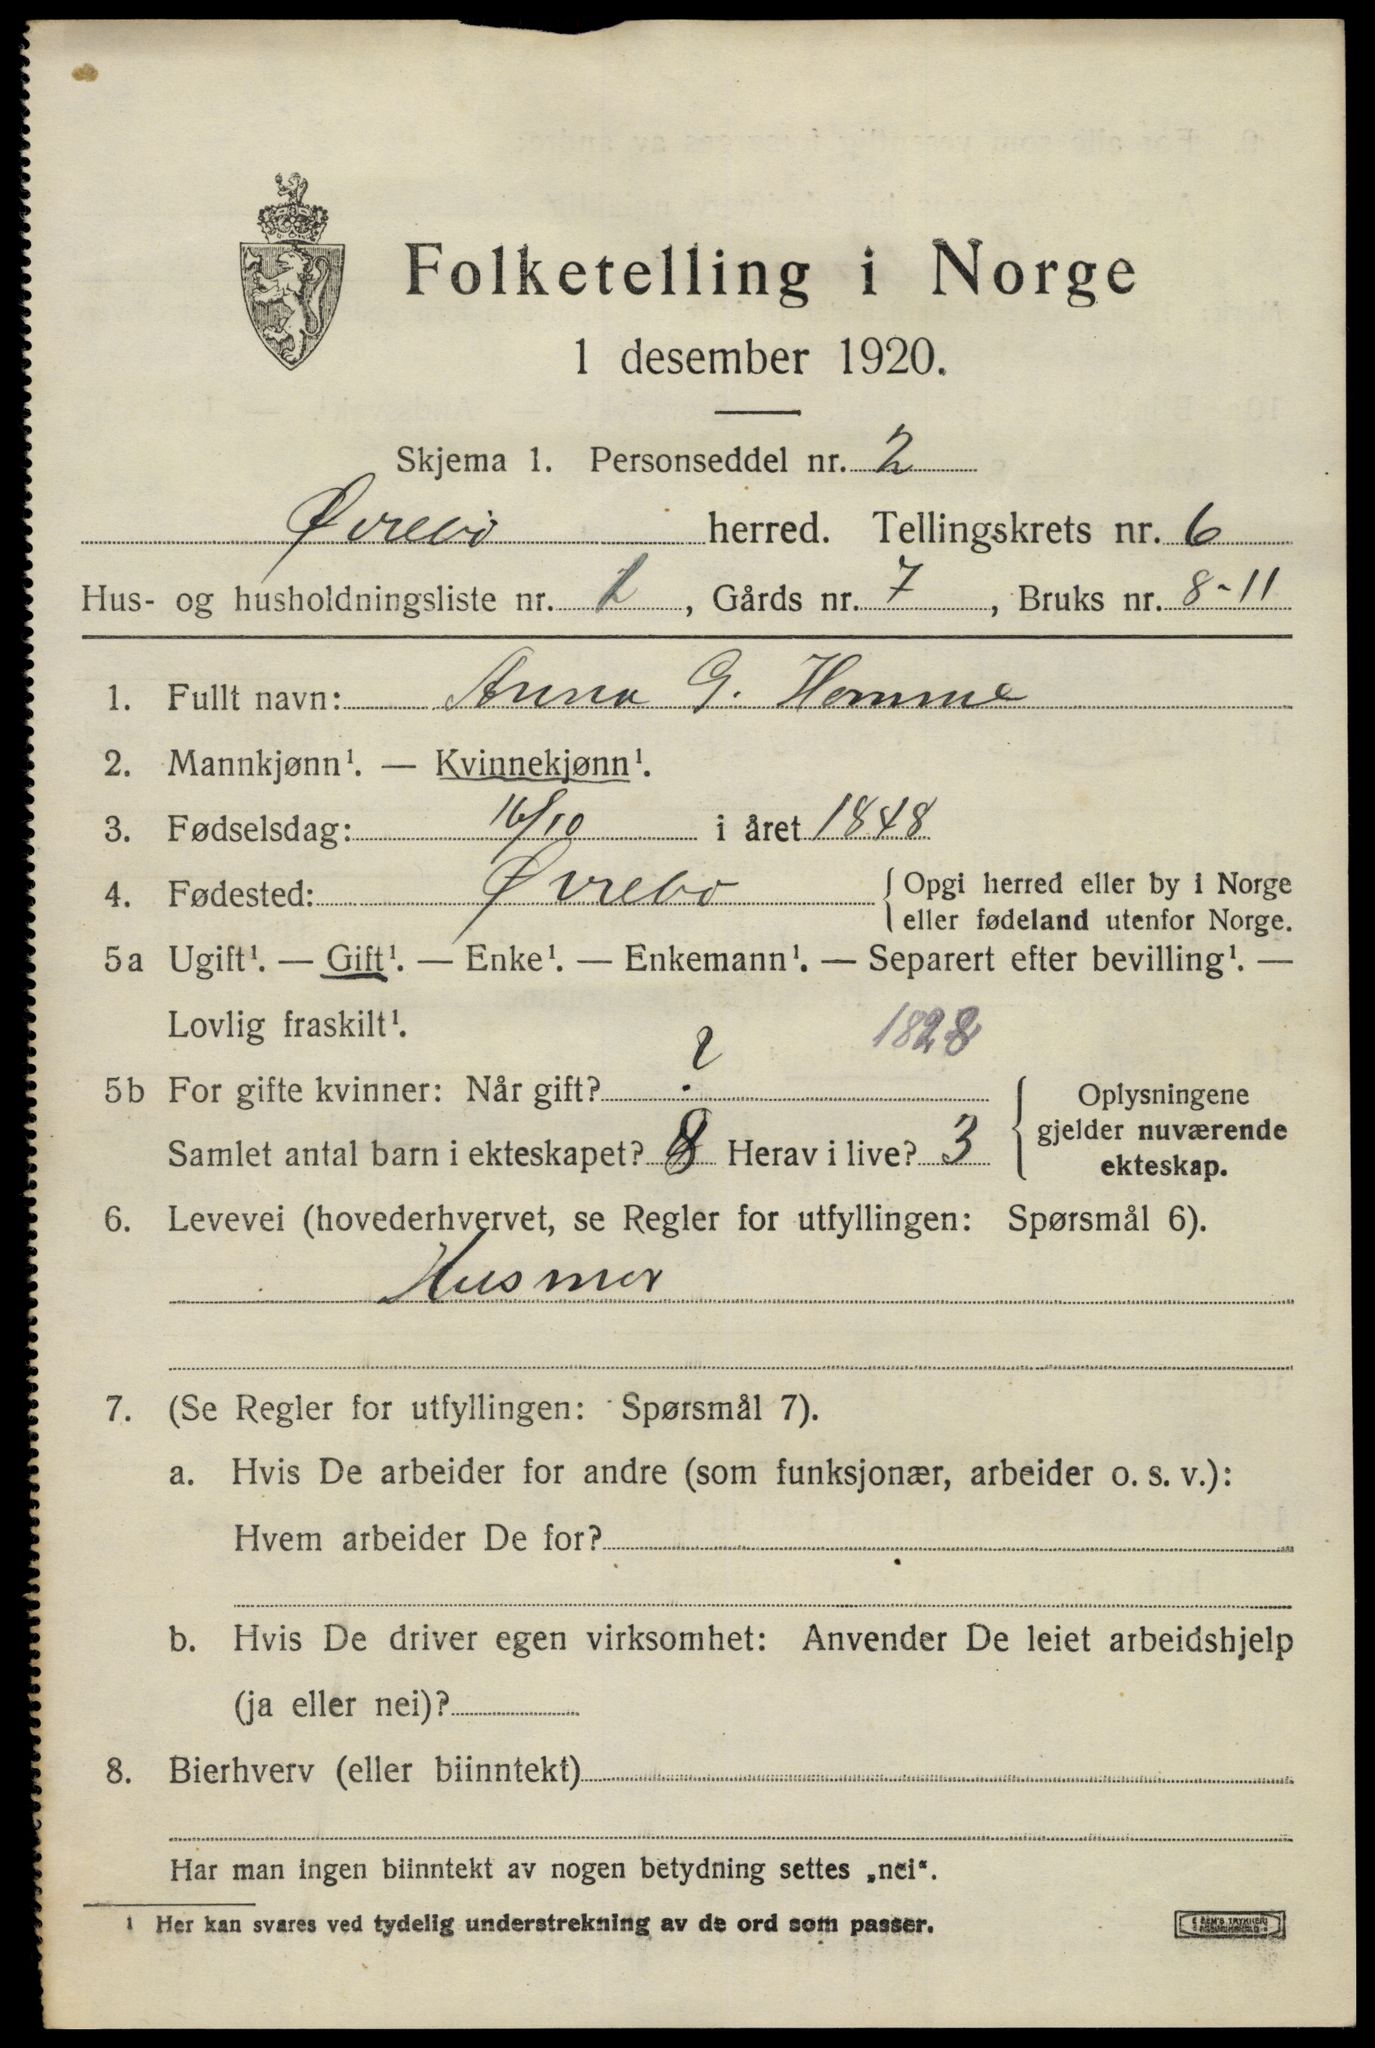 Folketelling i Norge
1 desember 1920.
Skjema 1. Personseddel nr. 2
Øvrebø herred. Tellingskrets nr. 6
Hus- og husholdningsliste nr. 1, Gårds nr. 7, Bruks nr. 8-11
1. Fullt navn: Anna G. Homme
2. Mannkjønn¹. — Kvinnekjønn¹.
3. Fødselsdag: 16/10 i året 1848
4. Fødested: Øvrebo { Opgi herred eller by i Norge
eller fødeland utenfor Norge.
5a Ugift¹. — Gift¹. — Enke¹. — Enkemann¹. — Separert efter bevilling¹. —
Lovlig fraskilt¹. 1828
5b For gifte kvinner: Når gift? ?
Samlet antal barn i ekteskapet? 8 Herav i live? 3
{ Oplysningene
gjelder nuværende
ekteskap.
6. Levevei (hovederhvervet, se Regler for utfyllingen: Spørsmål 6).
Husmor
7. (Se Regler for utfyllingen: Spørsmål 7).
a. Hvis De arbeider for andre (som funksjonær, arbeider o. s. v.):
Hvem arbeider De for?
b. Hvis De driver egen virksomhet: Anvender De leiet arbeidshjelp
(ja eller nei)?
8. Bierhverv (eller biinntekt)
Har man ingen biinntekt av nogen betydning settes „nei“.
¹ Her kan svares ved tydelig understrekning av de ord som passer.